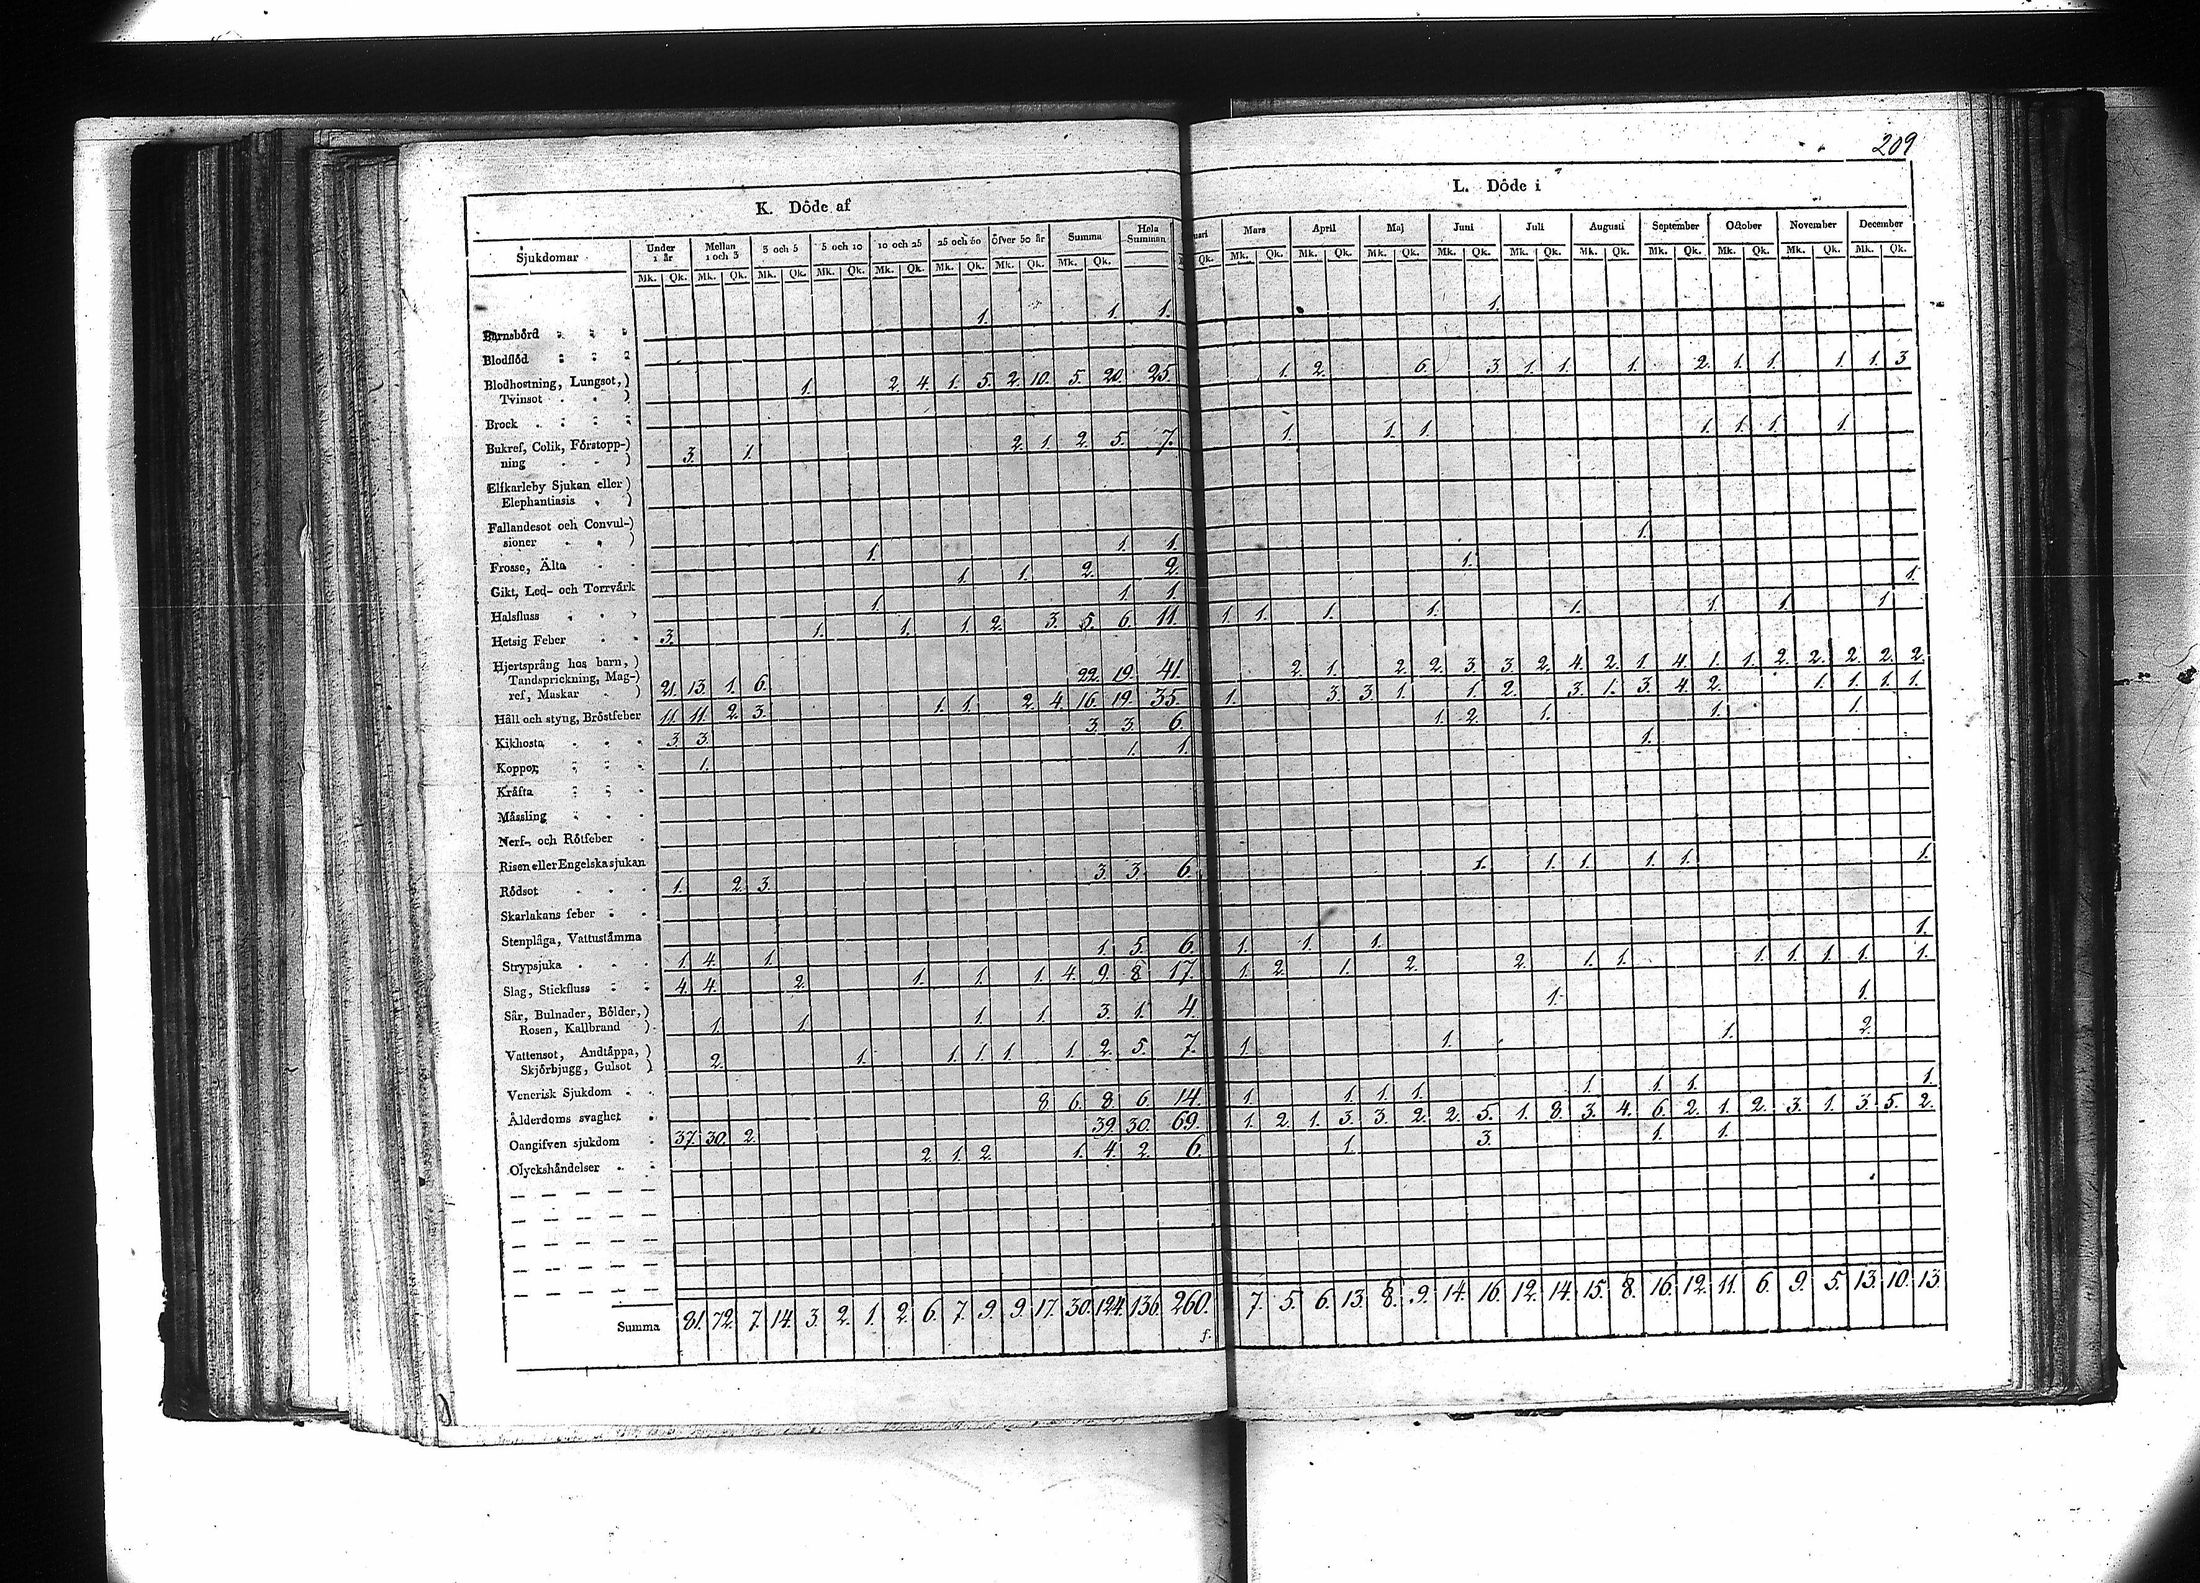 209
K. Döde af
L. Döde i
Sjukdomar
Under 1 år
Mellan 1 och 3
3 och 5
5 och 10
10 och 25
25 och 50
öfver 50 år
Summa
Hela Summan
Mars April Maj Juni Juli Augusti September October November December
Mk. Qk. Mk. Qk. Mk. Qk. Mk. Qk. Mk. Qk. Mk. Qk. Mk. Qk. Mk. Qk.
Qk. Mk. Qk. Mk. Qk. Mk. Qk. Mk. Qk. Mk. Qk. Mk. Qk. Mk. Qk. Mk. Qk. Mk. Qk. Mk. Qk.
Barnsbörd 1. 1. 1. 1.
Blodflöd
Blodhostning, Lungsot,)
Tvinsot 1. 2. 4. 1. 5. 2. 10. 5. 20. 25. 1. 2. 6. 3. 1. 1. 1. 2. 1. 1. 1. 1. 3
Brock
Bukref, Colik, Förstopp-)
ning 3. 1. 2. 1. 2. 5. 7. 1. 1. 1. 1. 1. 1. 1.
Elfkarleby Sjukan eller)
Elephantiasis
Fallandesot och Convul-)
sioner 1. 1. 1. 1.
Frosse, Älta 1. 1. 2. 2. 1.
Gikt, Led- och Torrvärk 1. 1. 1. 1.
Halsfluss 1. 1. 1. 2. 3. 5. 6. 11. 1. 1. 1. 1. 1. 1. 1. 1.
Hetsig Feber 3.
Hjertsprång hos barn,)
Tandsprickning, Mag-)
ref, Maskar 21. 13. 1. 6. 22. 19. 41. 2. 1. 2. 2. 3. 3. 2. 4. 2. 1. 4. 1. 1. 2. 2. 2. 2. 2.
Håll och styng, Bröstfeber 11. 11. 2. 3. 1. 1. 2. 4. 16. 19. 35. 1. 3. 3. 1. 1. 2. 3. 1. 3. 4. 2. 1. 1. 1. 1.
Kikhosta 3. 3. 3. 3. 6. 1. 2. 1. 1. 1.
Koppor 1. 1. 1. 1.
Kräfta
Mässling
Nerf- och Rötfeber
Risen eller Engelska sjukan
Rödsot 1. 2. 3. 3. 3. 6. 1. 1. 1. 1. 1. 1.
Skarlakans feber
Stenplåga, Vattustämma
Strypsjuka 1. 4. 1. 1. 5. 6. 1. 1. 1. 1.
Slag, Stickfluss 4. 4. 2. 1. 1. 1. 4. 9. 8. 17. 1. 2. 1. 2. 2. 1. 1. 1. 1. 1. 1. 1.
Sår, Bulnader, Bölder,)
Rosen, Kallbrand 1. 1. 1. 1. 3. 1. 4. 1. 1.
Vattensot, Andtäppa,)
Skjörbjugg, Gulsot 2. 1. 1. 1. 1. 1. 2. 5. 7. 1. 1. 1. 2.
Venerisk Sjukdom
Ålderdoms svaghet 8. 6. 8. 6. 14. 1. 1. 1. 1. 1. 1. 1. 1.
Oangifven sjukdom 37. 30. 2. 39. 30. 69. 1. 2. 1. 3. 3. 2. 2. 5. 1. 8. 3. 4. 6. 2. 1. 2. 3. 1. 3. 5. 2.
Olyckshändelser 2. 1. 2. 1. 4. 2. 6. 1. 3. 1. 1.
Summa 81. 72. 7. 14. 3. 2. 1. 2. 6. 7. 9. 9. 17. 30. 124. 136. 260. 7. 5. 6. 13. 8. 9. 14. 16. 12. 14. 15. 8. 16. 12. 11. 6. 9. 5. 13. 10. 13.